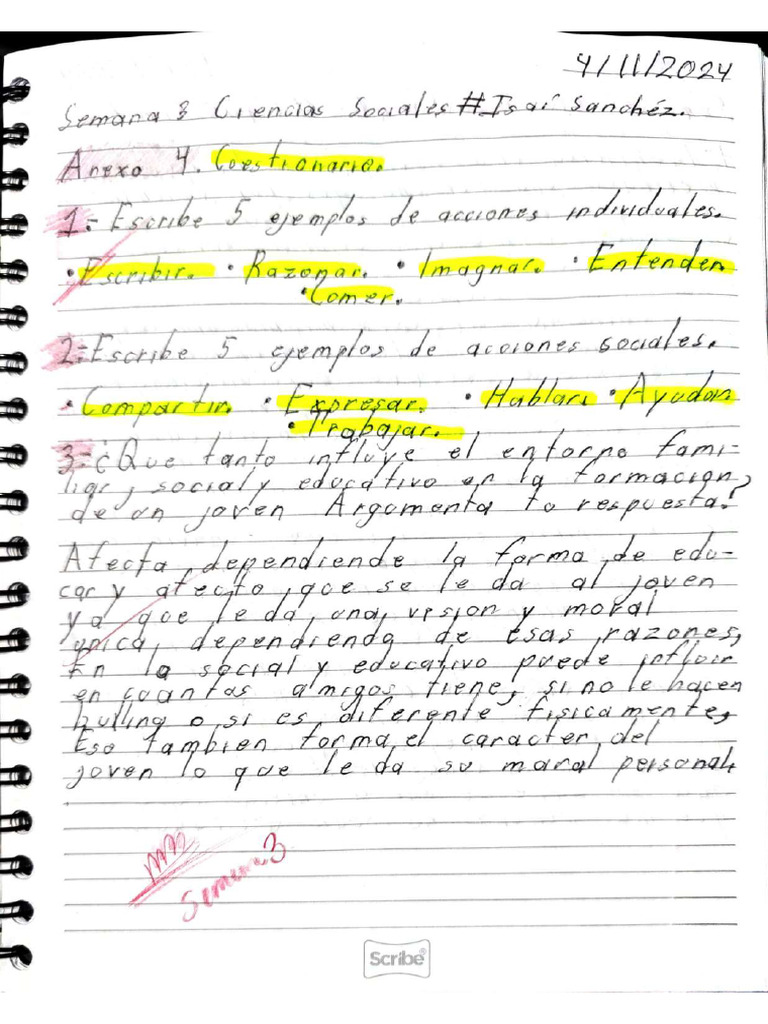 4/11/2024
Semana 3 Ciencias Sociales #Isaí Sanchéz.
Anexo 4. Coestionario.
1.- Escribe 5 ejemplos de acciones individuales.
• Escribir. • Razonar. • Imagnar. • Entender.
• Comer.
2.- Escribe 5 ejemplos de acciones sociales.
• Compartir. • Expresar. • Hablar. • Ayudar.
• Trabajar.
3.- ¿Que tanto influye el entorno fami-
liar, social y educativo en la formacion,
de un joven Argumenta tu respuesta?
Afecta, dependiende la forma, de edu-
car y afecto, que se le da al joven
ya que le da, una, vision y moral
unica, dependienda de esas razones,
En lo social y educativo puede influir
en cuantas amigos tiene, si no le hacen
bulling o si es diferente fisicamente,
Eso tambien forma, el caracter, del
joven lo que le da su moral personal,
Semana 3
Scribe®